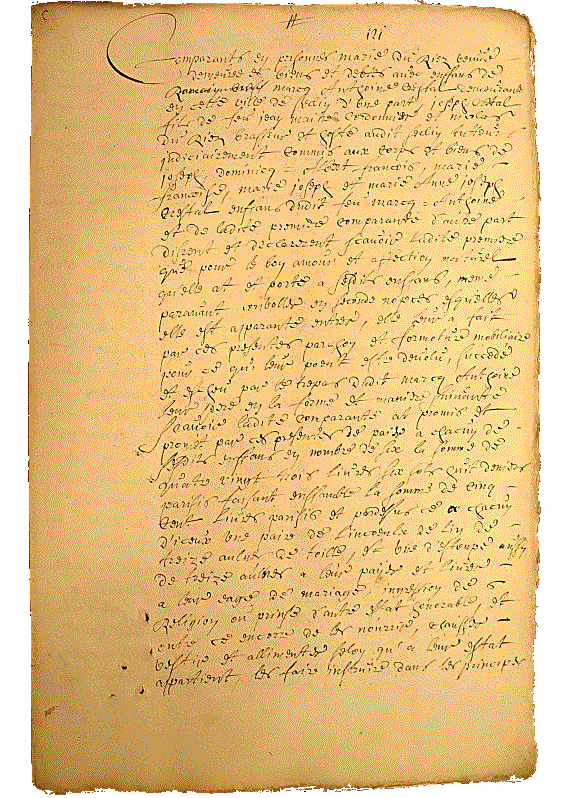 121
Comparants en personnes marie du Riez vefve
demeurée es biens et debtes avec enffans de
marcq Anthoine Cestal demeurans
en cette ville de Seclin d'une part, joseph Cestal
filz de feu jean maitre Cordonnier et nicolas
du Riez brasseur et hoste audit Seclin tuteurs
judiciairement commis aux corps et biens de
joseph, dominicq = Albert francois, marie
francoise, marie joseph et marie Anne joseph
Cestal enffans dudit feu marcq = Anthoine
et de ladite premiere Comparante d'autre part
disrent et declarerent scavoir ladite premiere
que pour le bon amour et affection naturel
qu'elle at et porte a sesdits enffans, meme
paravant convoller en seconde nopces esquelles
elle est apparante entrer, elle leur a fait
par ces presentes parchon et formoture mobiliaire
pour ce qui leur poeut estre devolu, succedé
et escheu par le trepas dudit marcq Anthoine
leur pere en la forme et maniere suivante
scavoir ladite comparante at promis et
promet par ces presentes de paier a chacun de
sesdits enffans en nombre de six la somme de
quatre vingt trois livres six sols huit deniers
parisis faisant enssamble la somme de cinq
cent livres parisis et pardessus ce a chacun
d'iceux une paire de linceulx de lin de
treize aulnes de toille, et une d'estoupe aussy
de treize aulnes a leur paier et livrer
a leur eage de mariage, ingression de
Religion ou prinse d'autre estat honorable, et
outre ce encorre de les nourrir, chausser
vestire et allimenter selon qu'a leur estat
appartient, les faire instruire dans les principes